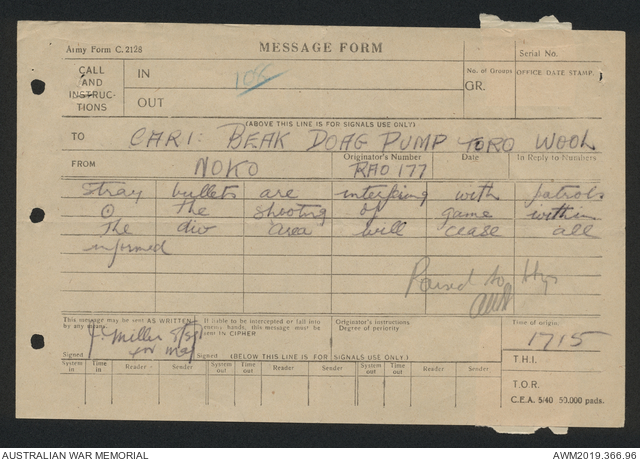 Army Form C. 2128
MESSAGE FORM
Serial No.
CALL AND INSTRUC-TIONS
IN
106
No. of Groups
GR.
OFFICE DATE STAMP.
OUT
(ABOVE THIS LINE IS FOR SIGNALS USE ONLY)
TO CARI: BEAK DOAG PUMP TORO WOOL
FROM Originator's Number Date In Reply to Numbers
NOKO RAO 177
Stray bullets are interfering with patrols
⊙ The shooting of game within
The div area will cease all
informed
Passed to Hqs
This message may be sent AS WRITTEN by any means.
If liable to be intercepted or fall into enemy hands, this message must be sent IN CIPHER.
Originator's instructions
Degree of priority
Time of origin.
1715
J. Miller S/Sgt
for Maj
Signed
Signed
(BELOW THIS LINE IS FOR SIGNALS USE ONLY)
T.H.I.
System in
Time in
Reader
Sender
System out
Time out
Reader
Sender
System out
Time out
Reader
Sender
T.O.R.
C.E.A. 5/40 50,000 pads.
AUSTRALIAN WAR MEMORIAL
AWM2019.366.96